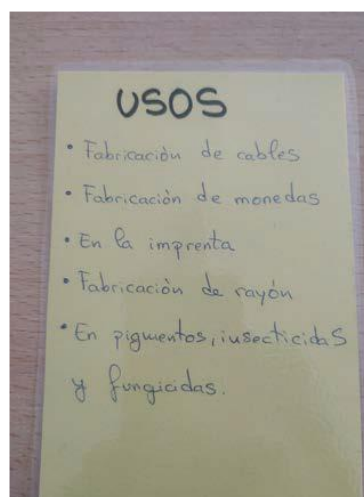 USOS
• Fabricación de cables
• Fabricación de monedas
• En la imprenta
• Fabricación de rayón
• En pigmentos, insecticidas
y fungicidas.